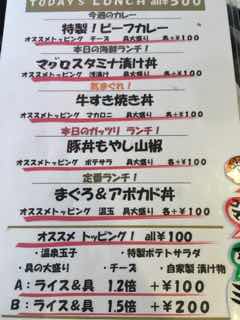 TODAYS LUNCH all¥500
今週のカレー
特製!ビーフカレー
オススメトッピング チーズ 具大盛り 各+¥100
本日の海鮮ランチ!
マグロスタミナ漬け丼
オススメトッピング 浅漬け 具大盛り 各+¥100
気まぐれ!
牛すき焼き丼
オススメトッピング マカロニ 具大盛り 各+¥100
本日のガッツリ ランチ!
豚丼もやし山椒
オススメトッピング ポテサラ 具大盛り 各+¥100
定番ランチ!
まぐろ&アボカド丼
オススメトッピング 温玉 具大盛り 各+¥100
オススメ トッピング! all¥100
・温泉玉子 ・特製ポテトサラダ
・具の大盛り ・チーズ ・自家製 漬け物
A:ライス&具 1.2倍 +¥100
B:ライス&具 1.5倍 +¥200